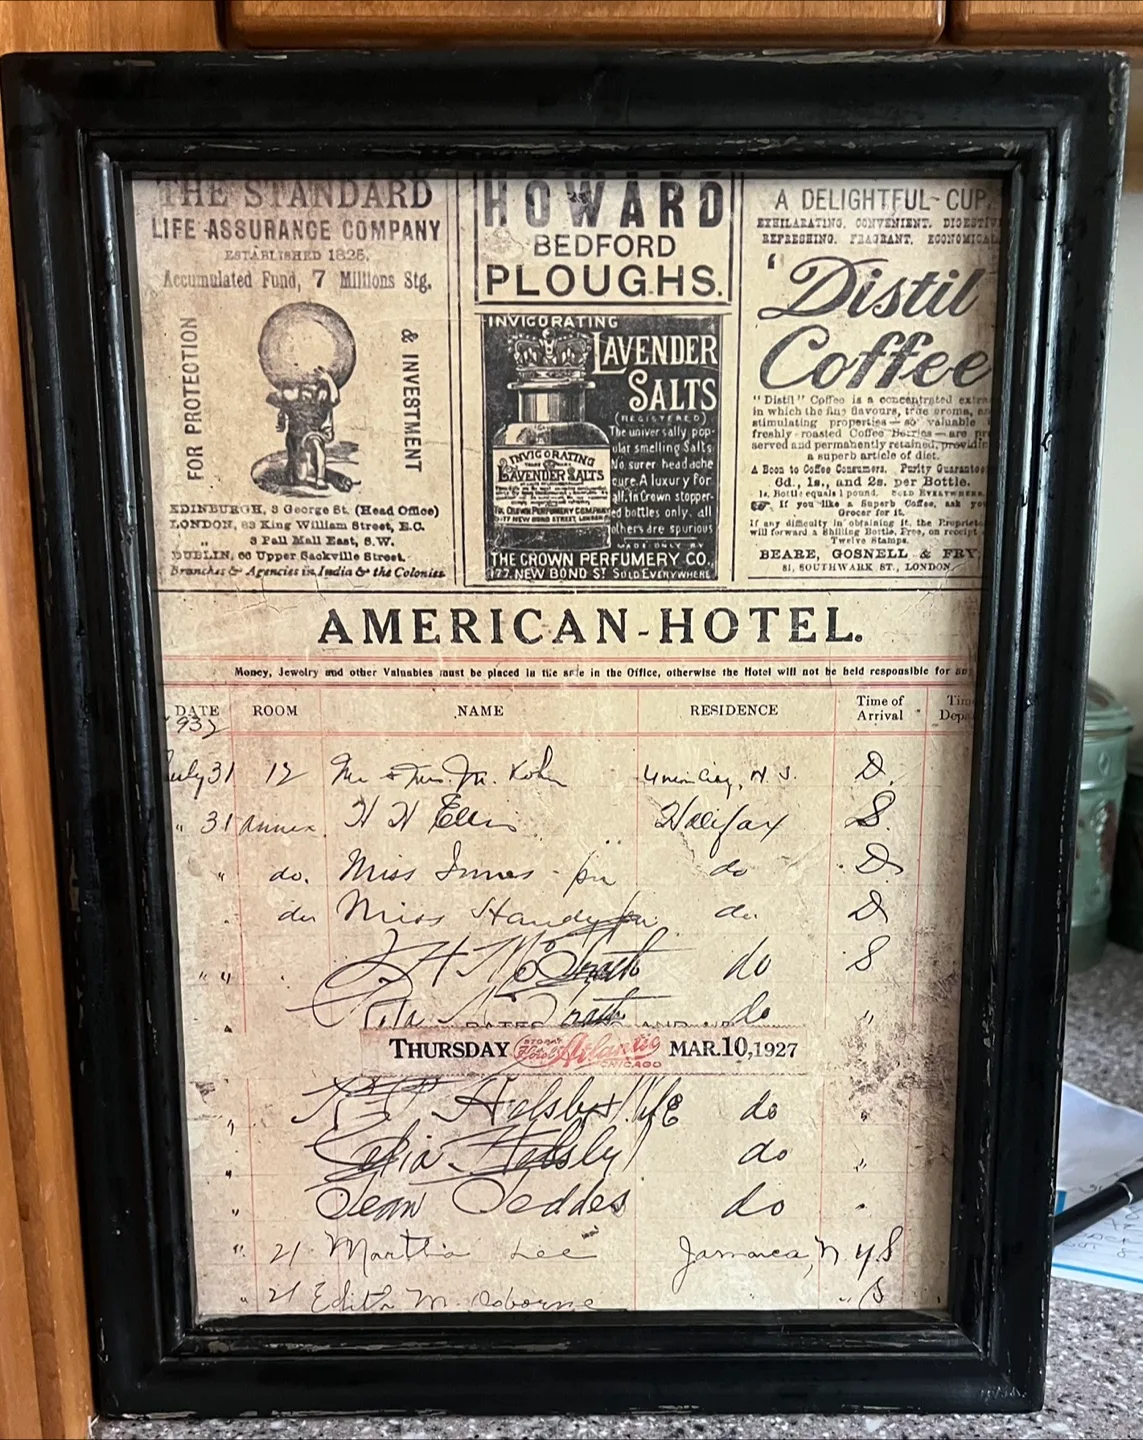 THE STANDARD
LIFE ASSURANCE COMPANY
ESTABLISHED 1825.
Accumulated Fund, 7 Millions Stg.
FOR PROTECTION
& INVESTMENT
EDINBURGH, 3 George St. (Head Office)
LONDON, 83 King William Street, E.C.
" 3 Pall Mall East, S.W.
DUBLIN, 66 Upper Sackville Street.
Branches & Agencies in India & the Colonies.
HOWARD
BEDFORD
PLOUGHS.
INVIGORATING
LAVENDER
SALTS
(REGISTERED)
The universally pop-
ular smelling Salts
No surer headache
cure. A luxury for
all. In Crown stopper-
ed bottles only. all
others are spurious
MADE ONLY BY
INVIGORATING
LAVENDER SALTS
THE CROWN PERFUMERY COMPANY
177 NEW BOND STREET LONDON
THE CROWN PERFUMERY CO.,
177. NEW BOND ST SOLD EVERYWHERE
A DELIGHTFUL CUP,
EXHILARATING, CONVENIENT, DIGESTIV
REFRESHING, FRAGRANT, ECONOMICAL
'Distil
Coffee
"Distil" Coffee is a concentrated extra
in which the fine flavours, true aroma, an
stimulating properties—so valuable
freshly roasted Coffee Berries—are pr
served and permanently retained, providin
a superb article of diet.
A Boon to Coffee Consumers. Purity Guarantee
6d., 1s., and 2s. per Bottle.
1s. Bottle equals 1 pound. SOLD EVERYWHERE.
If you like a Superb Coffee, ask yo
Grocer for it.
If any difficulty in obtaining it, the Propriet
will forward a Shilling Bottle, Free, on receipt
Twelve Stamps.
BEARE, GOSNELL & FRY,
81, SOUTHWARK ST., LONDON
AMERICAN-HOTEL.
Money, Jewelry and other Valuables must be placed in the safe in the Office, otherwise the Hotel will not be held responsible for any
DATE ROOM NAME RESIDENCE Time of Arrival Time Depa
July 31 12 Mr & Mrs M. Kohn Union City, N J. D.
" 31 annex. H H Ellis Halifax S.
" do. Miss Innes do D
do Miss Handy do D
" " H do S
do "
THURSDAY Hotel Atlantic CHICAGO MAR.10,1927
" Helsby & Wife do "
" Celia Helsby do "
" Jean Geddes do "
" 21 Martha Lee Jamaica, N.Y. S
" 21 Edith M. Osborne " S